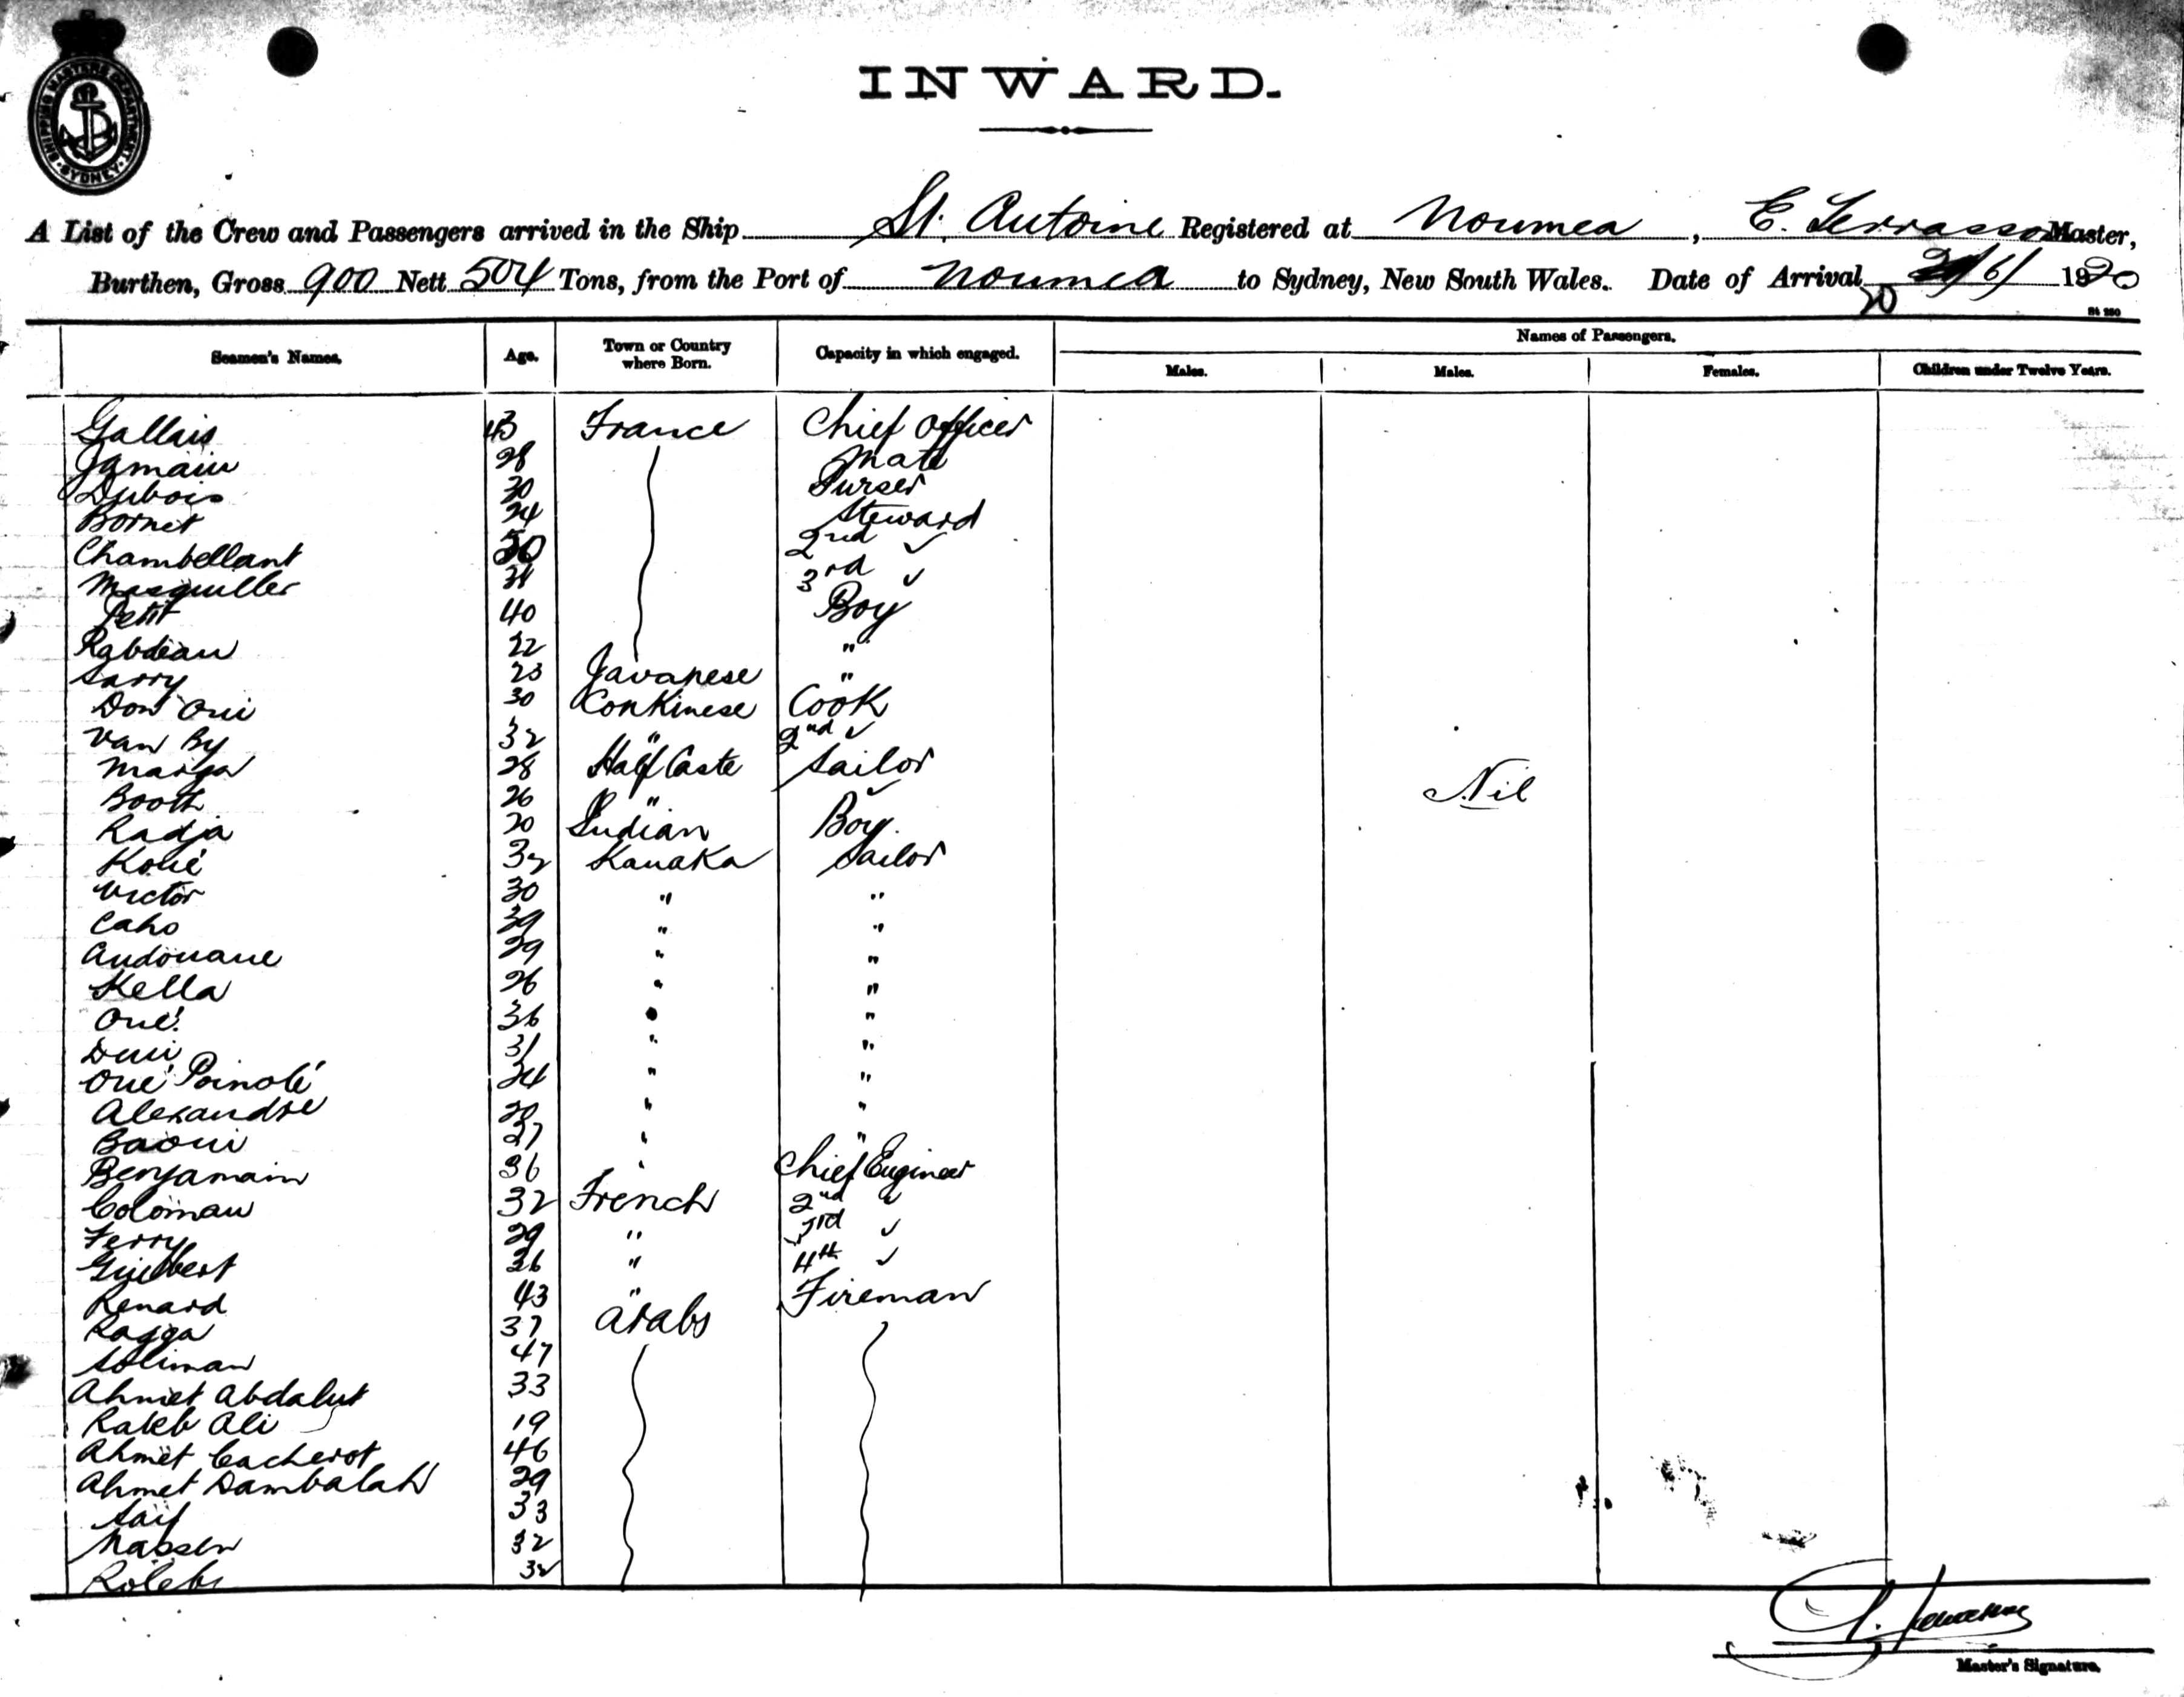 SHIPPING MASTERS DEPARTMENT SYDNEY
INWARD.
A List of the Crew and Passengers arrived in the Ship St. Antoine Registered at Noumea, E. Terrasson Master,
Burthen, Gross 900 Nett 504 Tons, from the Port of Noumea to Sydney, New South Wales. Date of Arrival 20/6/1920
Seamen's Names. Age. Town or Country where Born. Capacity in which engaged. Names of Passengers.
Males. Males. Females. Children under Twelve Years.
Gallais 43 France Chief Officer
Jamain 28 Mate
Dubois 30 Purser
Bornet 24 Steward
Chambellant 50 2nd ✓
Masquiller 31 3rd ✓
Petit 40 Boy
Rabdeau 22 "
Sarry 23 Javanese "
Don Oui 30 Conkinese Cook
Van By 32 " 2nd ✓
Marga 28 Half Caste Sailor
Booth 26 " ✓
Nil
Radja 20 Indian Boy.
Kolié 32 Kanaka Sailor
Victor 30 " "
Caho 39 " "
Audouane 29 " "
Kella 26 " "
Oué 36 " "
Dui 31 " "
Oué Poinolé 24 " "
Alexandre 20 " "
Baoui 27 " "
Benjamain 36 " Chief Engineer
Coloman 32 French 2nd ✓
Ferry 29 " 3rd ✓
Guilbert 26 " 4th ✓
Renard 43 " Fireman
Ragga 37 Arabs
Soliman 47
Ahmet Abdalut 33
Rateb Ali 19
Ahmet Cacherot 46
Ahmet Dambalah 29
Saïf 33
Nassen 32
Koleb 32
Master's Signature.